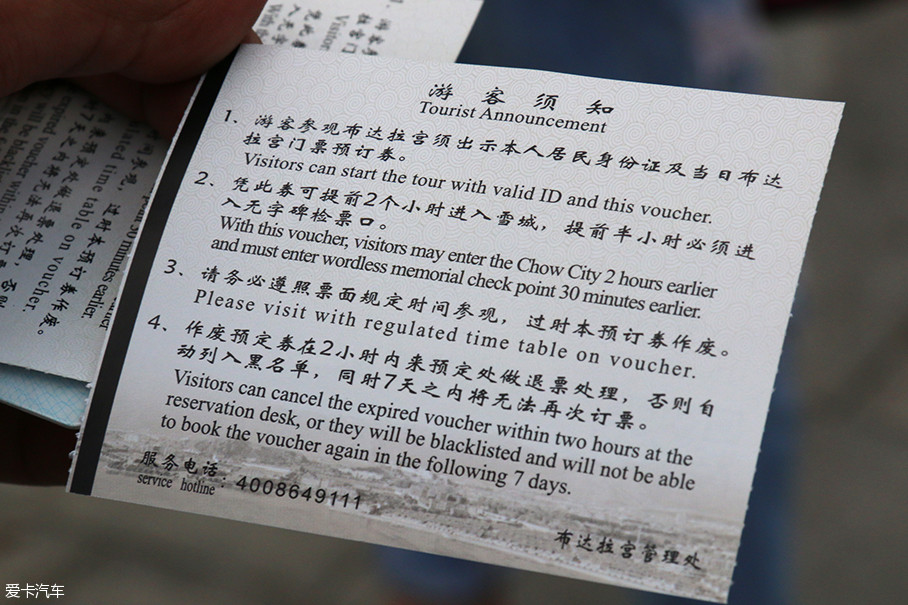 游客须知
Tourist Announcement
1、游客参观布达拉宫须出示本人居民身份证及当日布达
拉宫门票预订券。
Visitors can start the tour with valid ID and this voucher.
2、凭此券可提前2个小时进入雪城，提前半小时必须进
入无字碑检票口。
With this voucher, visitors may enter the Chow City 2 hours earlier
and must enter wordless memorial check point 30 minutes earlier.
3、请务必遵照票面规定时间参观，过时本预订券作废。
Please visit with regulated time table on voucher.
4、作废预定券在2小时内来预定处做退票处理，否则自
动列入黑名单，同时7天之内将无法再次订票。
Visitors can cancel the expired voucher within two hours at the
reservation desk, or they will be blacklisted and will not be able
to book the voucher again in the following 7 days.
服务电话：4008649111
service hotline
布达拉宫管理处
爱卡汽车